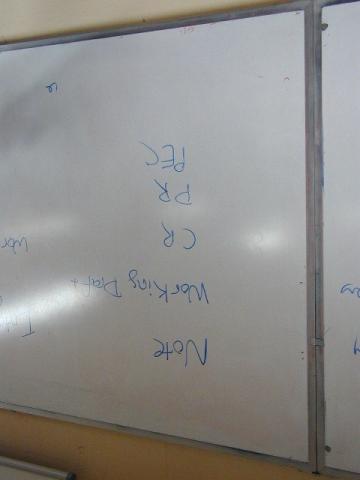 Note
Working Draft
CR
PR
REC